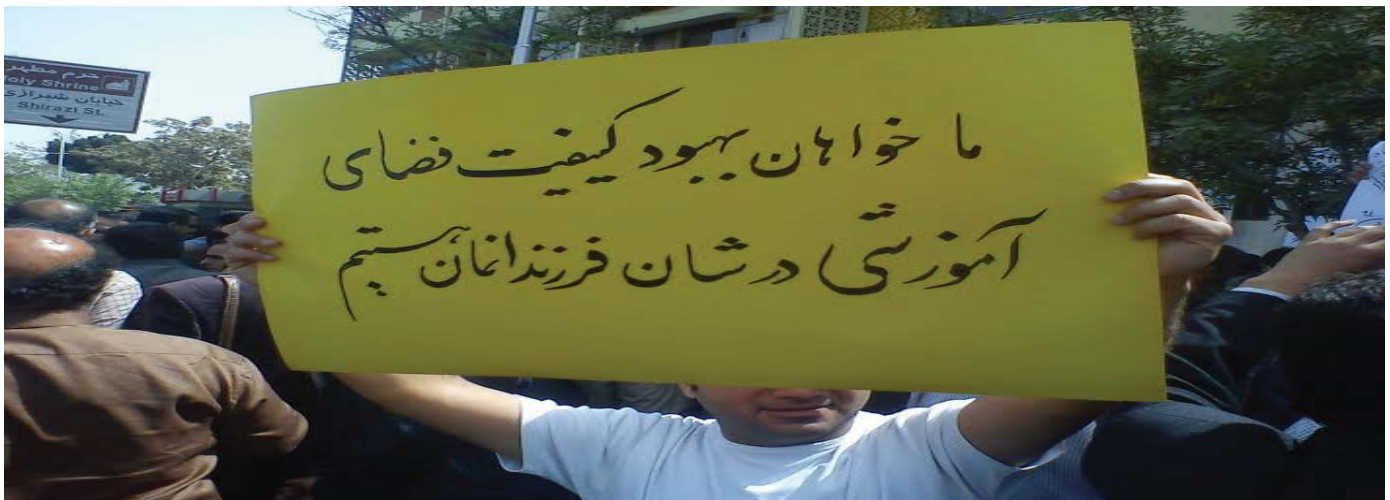 حرم مطهر
Holy Shrine
خیابان شیرازی
Shirazi St.
ما خواهان بهبود کیفیت فضای
آموزشی در شان فرزندانمان هستیم